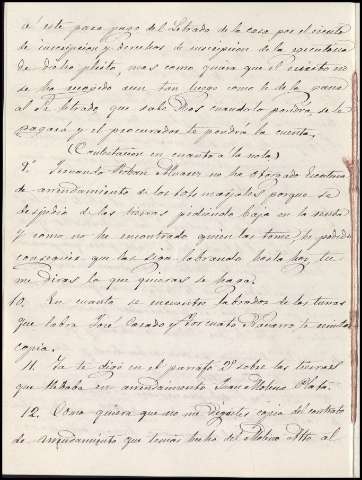 al este para pago del Letrado de la casa por el escrito
de inscripcion y derechos de inscripcion de la
de dicho pleito, mas como quiera que el escrito no
se ha recojido aun tan luego como te de la
al Sr letrado que sabe Dios cuando la pondra, se le
pagará y el procurador te pondra la cuenta.
(Contestacion en cuanto á la nota)
9.º Fernando Alvarez no ha otorgado Escritura
de arrendamiento de los majales porque se
despidio de las tierras pidiendo baja en la renta
y como no he encontrado quien las tome he podido
conseguir que las siga labrando hasta hoy, tu
me diras lo que quieras se haga.
10. En cuanto se encuentre labrador de las tierras
que labra José Casado y Navarro te remitiré
copia.
11. Ya te digo en el parrafo 2º sobre las tierras
que llebaba en arrendamiento Juan Molero
12. Como quiera que no me dejastes copia del contrato
de arrendamiento que temias hecho del Molino Alto al